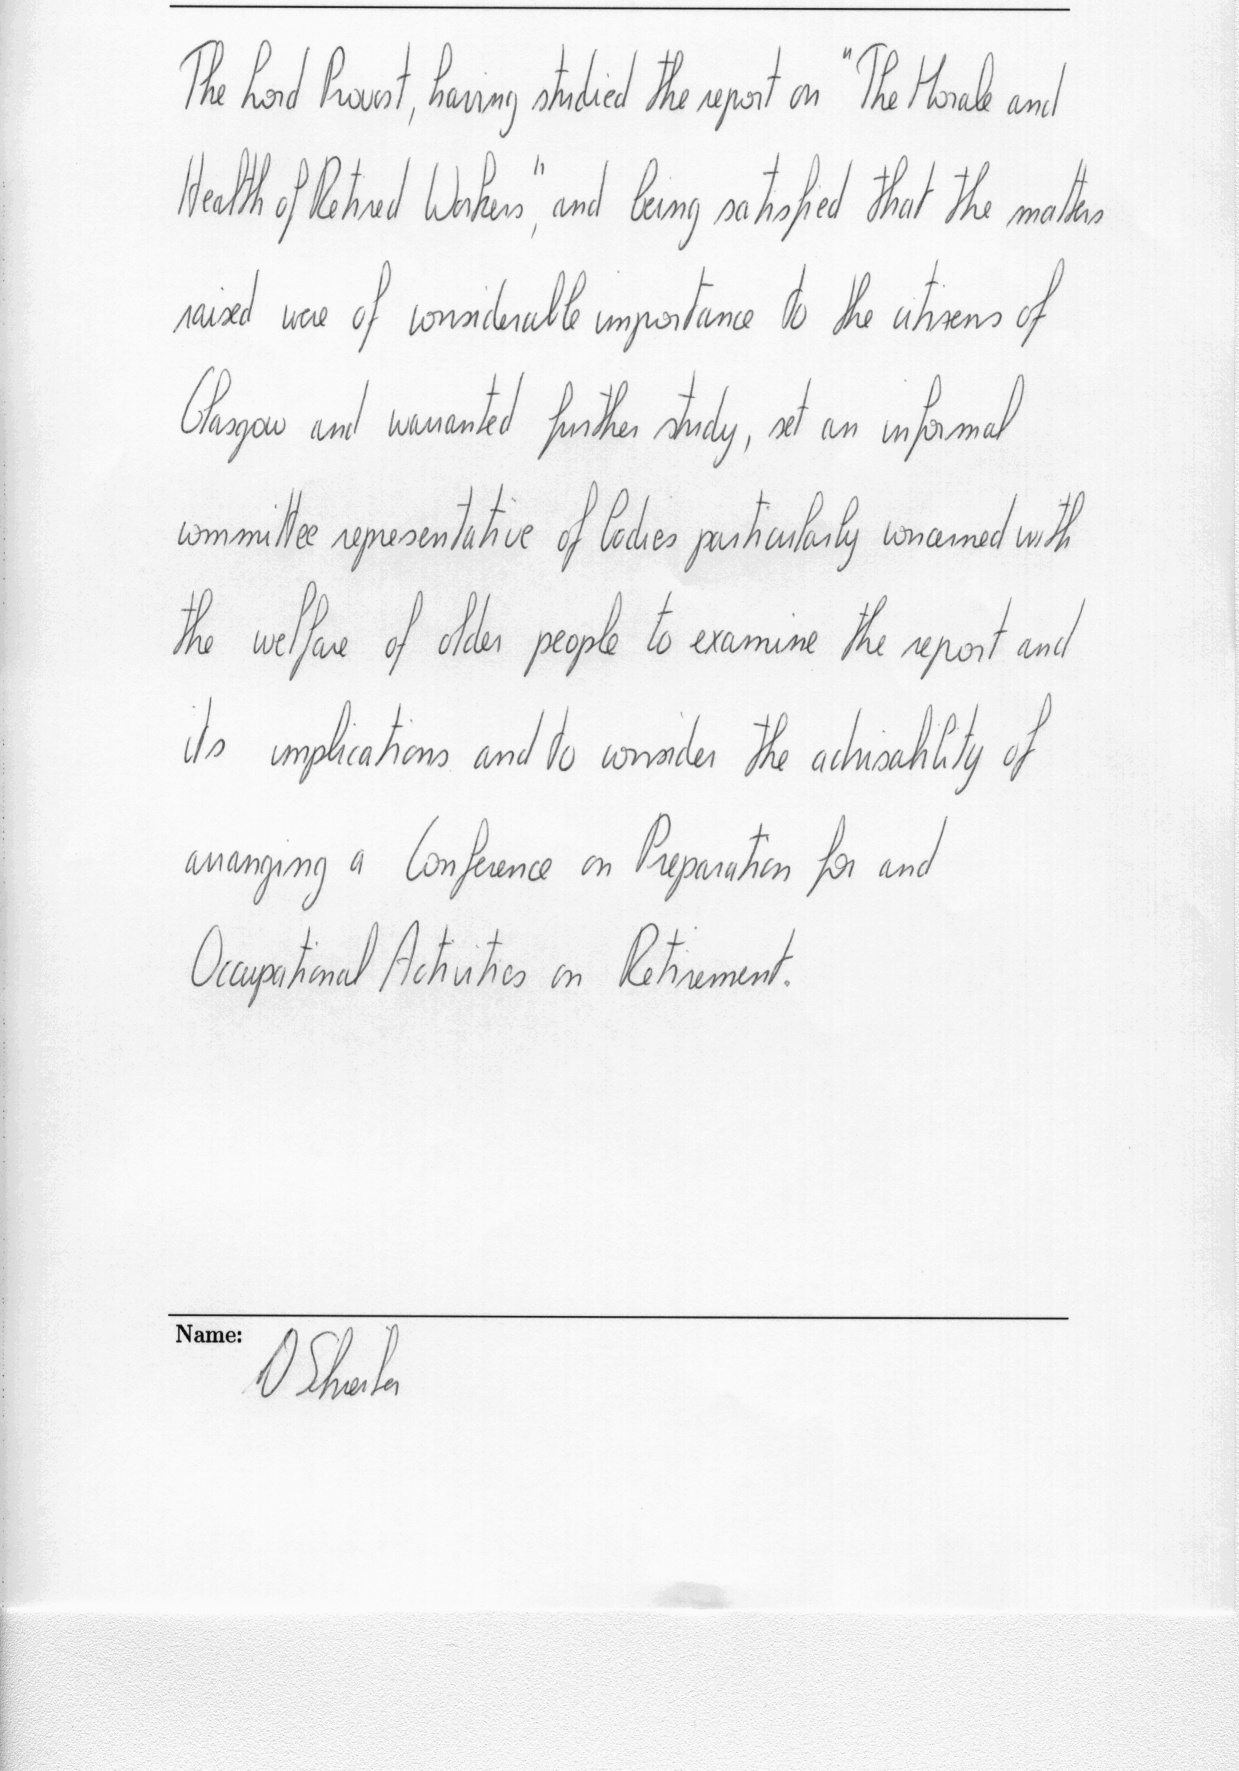 The Lord Provost, having studied the report on "The Morale and
Health of Retired Workers", and being satisfied that the matters
raised were of considerable importance to the citizens of
Glasgow and warranted further study, set an informal
committee representative of bodies particularly concerned with
the welfare of older people to examine the report and
its implications and to consider the advisability of
arranging a Conference on Preparation for and
Occupational Activities on Retirement.
Name:
D